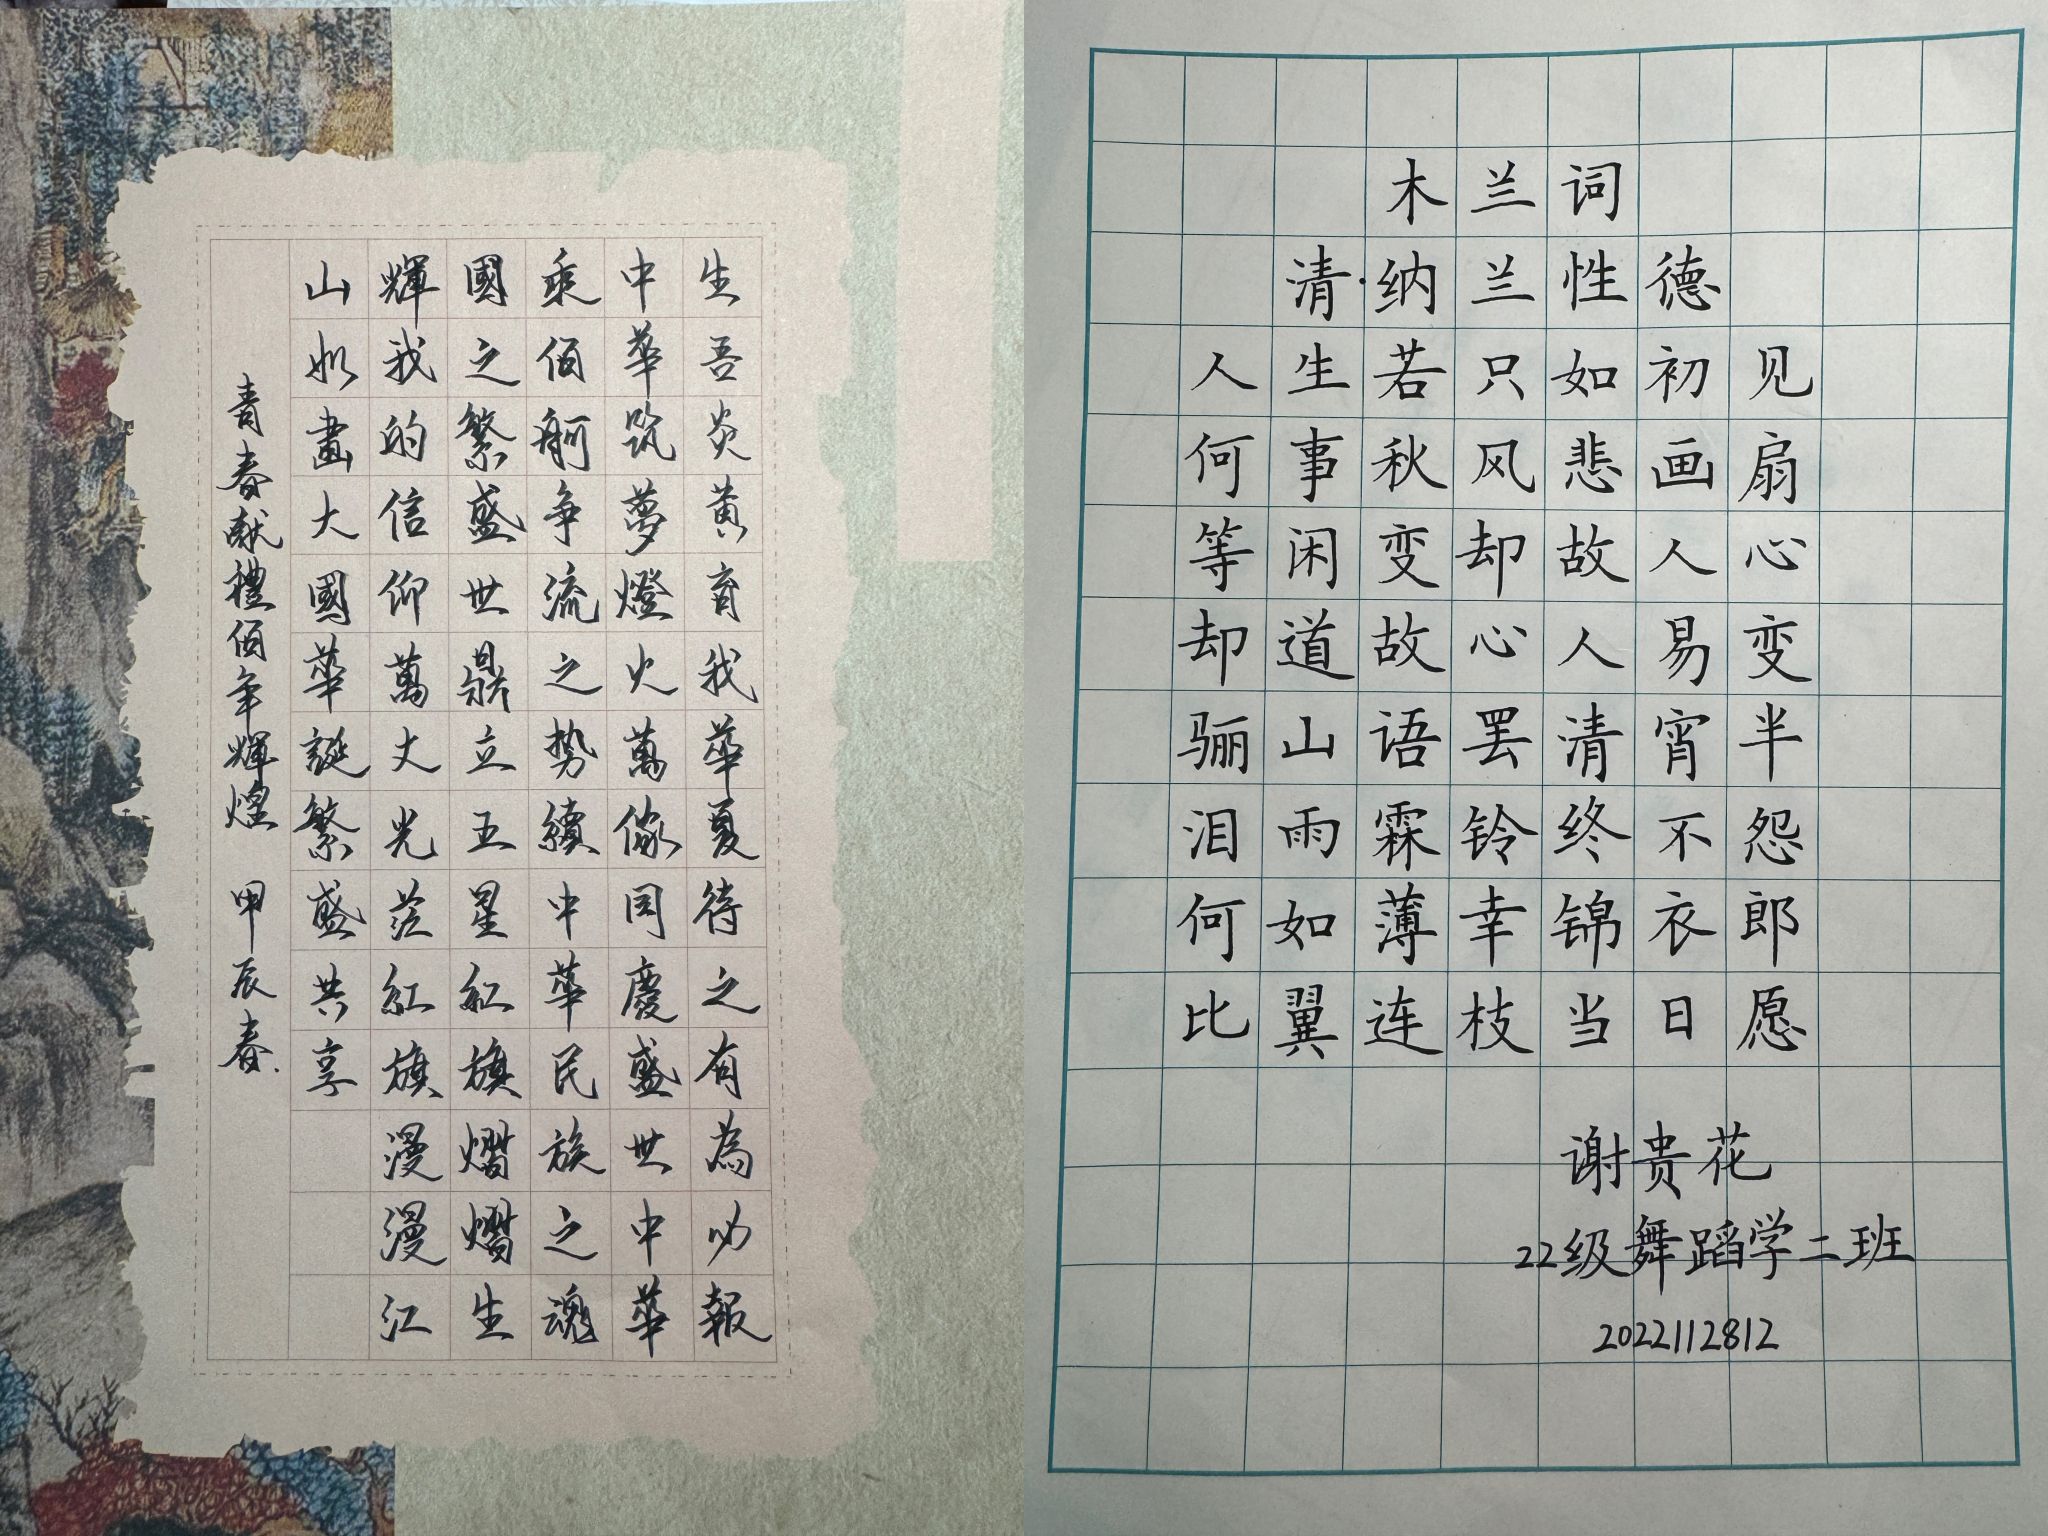 生吾炎黄育我華夏待之有為必報
中華筑夢燈火萬傢同慶盛世中華
乘佰舸争流之势續中華民族之魂
國之繁盛世鼎立五星紅旗熠熠生
輝我的信仰萬丈光茫紅旗漫漫江
山如畫大國華誕繁盛共享
青春献禮佰年輝煌 甲辰春
木兰词
清·纳兰性德
人生若只如初见
何事秋风悲画扇
等闲变却故人心
却道故心人易变
骊山语罢清宵半
泪雨霖铃终不怨
何如薄幸锦衣郎
比翼连枝当日愿
谢贵花
22级舞蹈学二班
2022112812